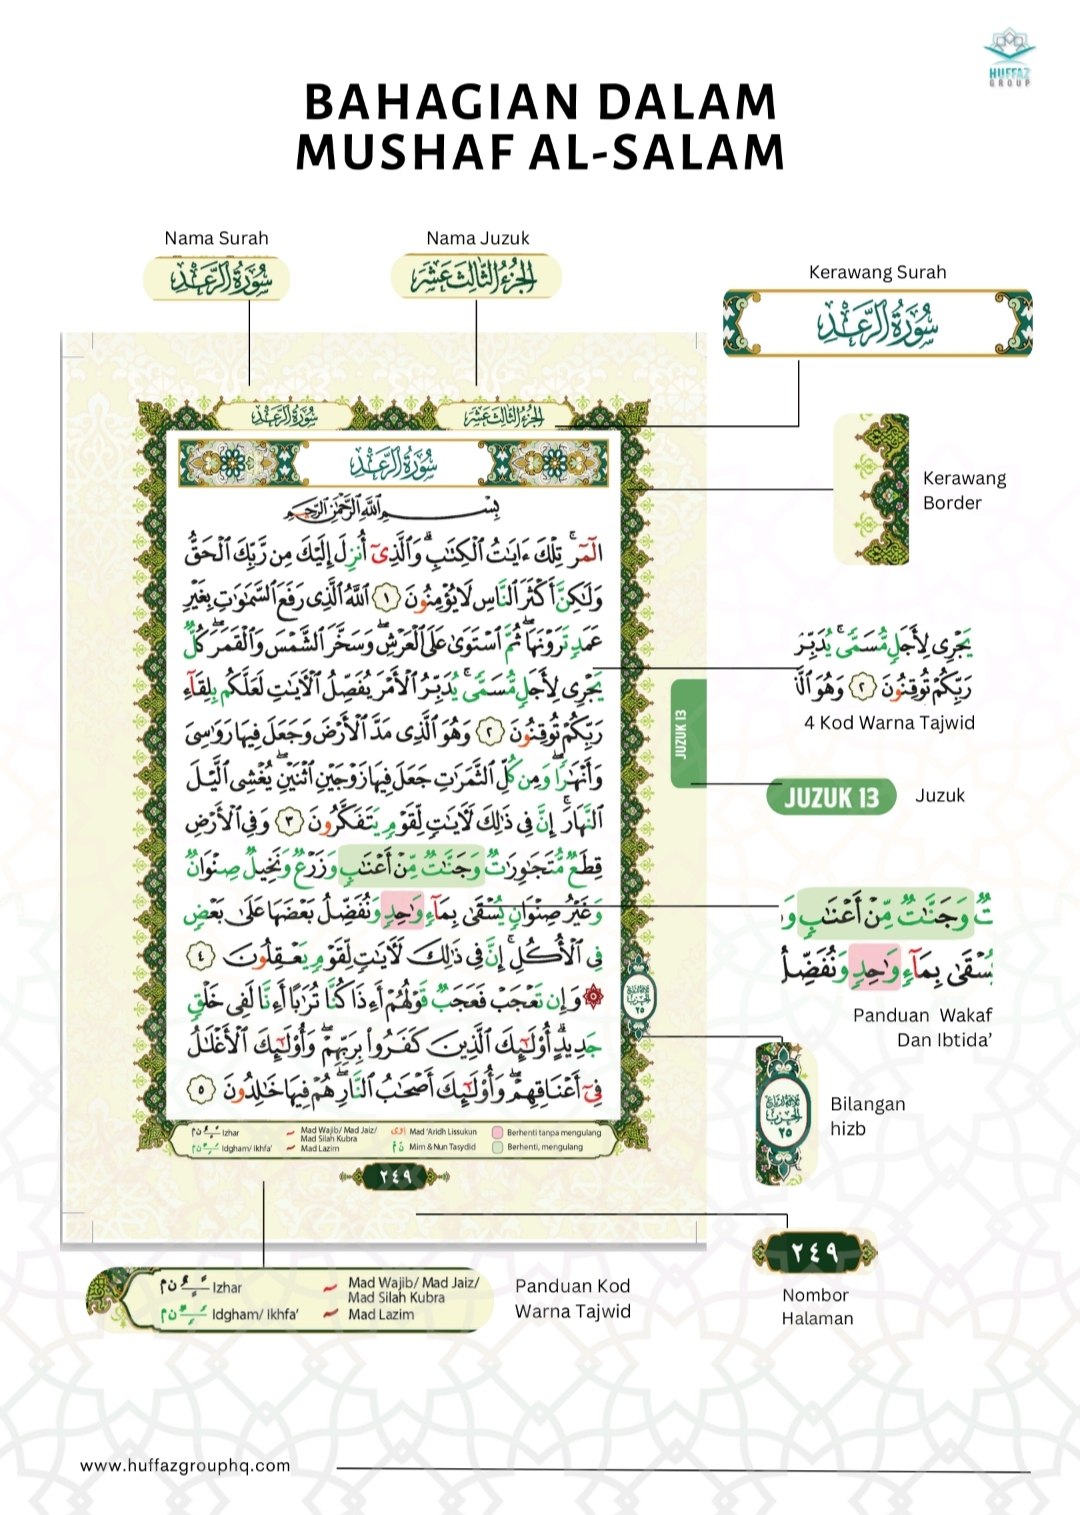 HUFFAZ
GROUP
BAHAGIAN DALAM
MUSHAF AL-SALAM
Nama Surah
سُورَةُ الرَّعْدِ
Nama Juzuk
الجُزْءُ الثَّالِثَ عَشَرَ
Kerawang Surah
سُورَةُ الرَّعْدِ
سُورَةُ الرَّعْدِ
الجُزْءُ الثَّالِثَ عَشَرَ
سُورَةُ الرَّعْدِ
بِسْمِ ٱللَّهِ ٱلرَّحْمَٰنِ ٱلرَّحِيمِ
الٓمٓرۚ تِلْكَ ءَايَٰتُ ٱلْكِتَٰبِۗ وَٱلَّذِىٓ أُنزِلَ إِلَيْكَ مِن رَّبِّكَ ٱلْحَقُّ
وَلَٰكِنَّ أَكْثَرَ ٱلنَّاسِ لَا يُؤْمِنُونَ ١ ٱللَّهُ ٱلَّذِى رَفَعَ ٱلسَّمَٰوَٰتِ بِغَيْرِ
عَمَدٍ تَرَوْنَهَاۖ ثُمَّ ٱسْتَوَىٰ عَلَى ٱلْعَرْشِۖ وَسَخَّرَ ٱلشَّمْسَ وَٱلْقَمَرَۖ كُلٌّ
يَجْرِى لِأَجَلٍ مُّسَمًّىۚ يُدَبِّرُ ٱلْأَمْرَ يُفَصِّلُ ٱلْءَايَٰتِ لَعَلَّكُم بِلِقَآءِ
رَبِّكُمْ تُوقِنُونَ ٢ وَهُوَ ٱلَّذِى مَدَّ ٱلْأَرْضَ وَجَعَلَ فِيهَا رَوَٰسِىَ
وَأَنْهَٰرًاۖ وَمِن كُلِّ ٱلثَّمَرَٰتِ جَعَلَ فِيهَا زَوْجَيْنِ ٱثْنَيْنِۖ يُغْشِى ٱلَّيْلَ
ٱلنَّهَارَۚ إِنَّ فِى ذَٰلِكَ لَءَايَٰتٍ لِّقَوْمٍ يَتَفَكَّرُونَ ٣ وَفِى ٱلْأَرْضِ
قِطَعٌ مُّتَجَٰوِرَٰتٌ وَجَنَّٰتٌ مِّنْ أَعْنَٰبٍ وَزَرْعٌ وَنَخِيلٌ صِنْوَانٌ
وَغَيْرُ صِنْوَانٍ يُسْقَىٰ بِمَآءٍ وَٰحِدٍ وَنُفَضِّلُ بَعْضَهَا عَلَىٰ بَعْضٍ
فِى ٱلْأُكُلِۚ إِنَّ فِى ذَٰلِكَ لَءَايَٰتٍ لِّقَوْمٍ يَعْقِلُونَ ٤
۞ وَإِن تَعْجَبْ فَعَجَبٌ قَوْلُهُمْ أَءِذَا كُنَّا تُرَٰبًا أَءِنَّا لَفِى خَلْقٍ
جَدِيدٍۗ أُو۟لَٰٓئِكَ ٱلَّذِينَ كَفَرُوا۟ بِرَبِّهِمْۖ وَأُو۟لَٰٓئِكَ ٱلْأَغْلَٰلُ
فِىٓ أَعْنَاقِهِمْۖ وَأُو۟لَٰٓئِكَ أَصْحَٰبُ ٱلنَّارِۖ هُمْ فِيهَا خَٰلِدُونَ ٥
الحزب
٢٥
Izhar
Mad Wajib/ Mad Jaiz/
Mad Silah Kubra
Mad 'Aridh Lissukun
Berhenti tanpa mengulang
Idgham/ Ikhfa'
Mad Lazim
Mim & Nun Tasydid
Berhenti, mengulang
٢٤٩
JUZUK 13
Kerawang
Border
يَجْرِى لِأَجَلٍ مُّسَمًّىۚ يُدَبِّرُ
رَبِّكُمْ تُوقِنُونَ ٢ وَهُوَ ٱلَّذِ
4 Kod Warna Tajwid
JUZUK 13
Juzuk
تٌ وَجَنَّٰتٌ مِّنْ أَعْنَٰبٍ وَ
يُسْقَىٰ بِمَآءٍ وَٰحِدٍ وَنُفَضِّلُ
Panduan Wakaf
Dan Ibtida'
الحزب
٢٥
Bilangan
hizb
٢٤٩
Nombor
Halaman
ن م Izhar
Mad Wajib/ Mad Jaiz/
Mad Silah Kubra
ن م Idgham/ Ikhfa'
Mad Lazim
Panduan Kod
Warna Tajwid
www.huffazgrouphq.com